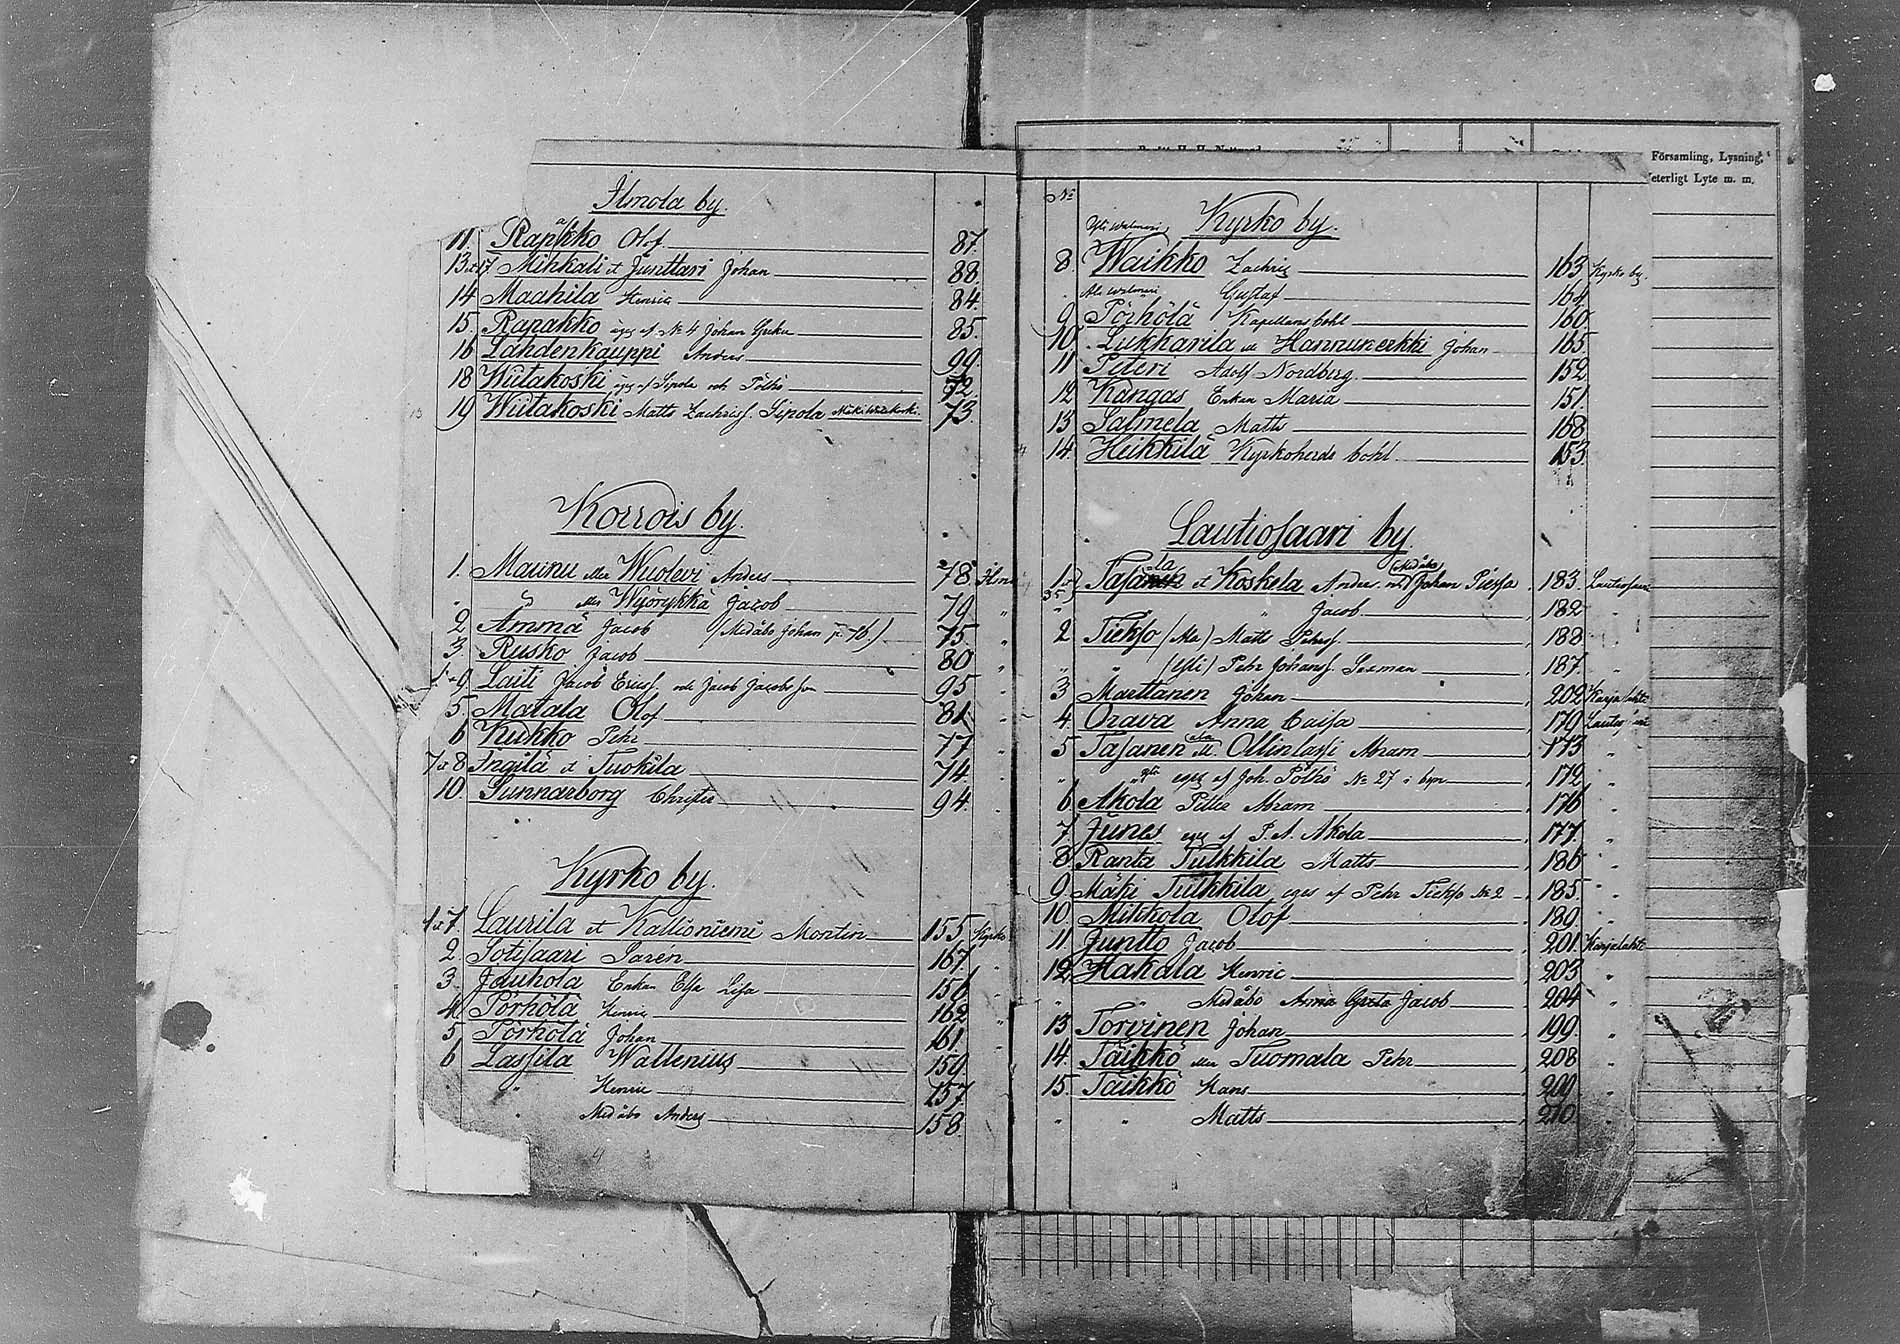 Ilmola by.
11. Rapakko Olof 87.
13 et 17 Mihkali et Junttari Johan 88.
14 Maahila Henric 84.
15. Rapakko äges af No 4 Johan 85.
16 Lahdenkauppi Anders 99.
18 Wiitakoski äges af Sipola och Pölhö 72.
19 Wiitakoski Matts Zachriss. Sipola 73.
Korrois by.
1. Maunu eller Wuolevi Anders 78
" " eller Wyörykkä Jacob 79 "
2. Ämmä Jacob (Medåbo Johan p. 76.) 75. "
3 Rusko Jacob 80 "
Laiti Jacob Ericss. och Jacob Jacobsson 95
5 Matala Olof 81.
6 Kukko Pehr 77 "
7 et 8 Ingilä et Tuokila 74.
10. Sunnarborg Christer 94.
Kyrko by.
1 et 7 Laurila et Kallioniemi Montin 155 Kyrko
2. Sotisaari Sarén 167
3. Jauhola Enkan Elsa Lisa 156
4. Pörhölä Henric 162
5 Pörhölä Johan 161
6 Lassila Wallenius 159
" Henric 157
" Medåbo Anders 158.
No
Kyrko by.
8. Waikko Zachris 163 Kyrko by.
Gustaf 164
9 Pörhölä Kapellans bohl 160
10. Lukkarila et Hannunerkki Johan 165
11 Peteri Adolf Nordberg 152
12 Kangas Enkan Maria 151.
13 Salmela Matts 168
14. Heikkilä Kyrkoherde bohl 153.
Församling, Lysning,
Veterligt Lyte m. m.
Lautiosaari by
et Koskela Anders och Johan Piessa 183. Lautiosaari
" Jacob 182 "
2 Tiekso (Ala) Matts Pehrss. 188 "
" " (Yli) Pehr Johanss. 187. "
3 Marttanen Johan 202 Karjalahti
4 Orava Anna Caisa 179
5 Tasanen Ollinlassi Abram 173 "
" yli egs af Joh. Pölhö No 27 i byn 172 "
6 Akola Petter Abram 176
7 Junes egs af P. A. Akola 177. "
8 Ranta Tulkkila Matts 186 "
9. Mäki Tulkkila eges af Pehr Tiekso No 2 185.
10 Mikkola Olof 189
11 Juntto Jacob 201. Karjalahti
12. Hakala Henric 203
" " Medåbo Anna Greta Jacob 204 "
13 Torvinen Johan 199. "
14. Täikkö eller Tuomala Pehr 208
15. Täikkö Hans 209
" " Matts 210 "